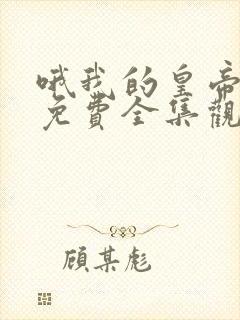 哦我的皇帝
免費全集觀
顧某彪